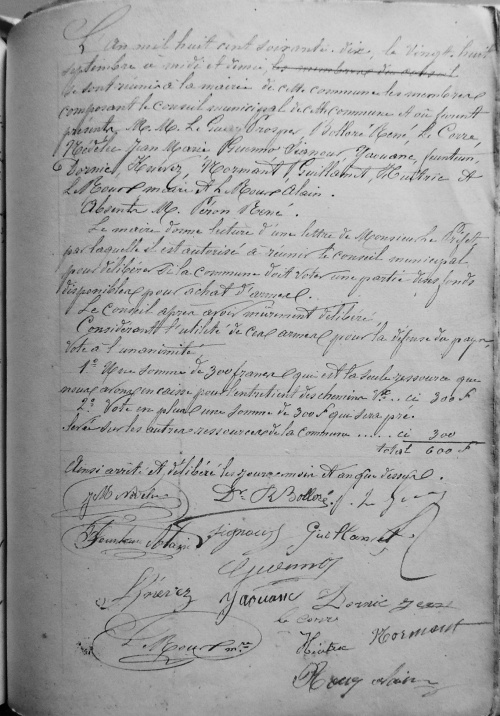 L'An mil huit cent soixante-dix, le vingt-huit
septembre a midi et demie, les membres du conseil
se sont réunis à la mairie de cette commune les membres
composant le conseil municipal de cette commune et où furent
présents M. M. Le Guay Prosper, Bolloré René, Le Corre,
Nédélec Jean Marie Quéméré Signour, Yaouanc,
Dornic, Kervez, Normant, Guillamet, Huitric et
Le Mour maire et Le Mour Alain.
Absents M. Péron René.
Le maire donne lecture d'une lettre de Monsieur le Préfet
par laquelle il est autorisé à réunir le conseil municipal
pour délibérer si la commune doit voter une partie des fonds
disponibles pour achat d'armes.
Le Conseil après avoir mûrement délibéré
Considérant l'utilité de ces armes pour la défense du pays,
vote à l'unanimité
1° Une somme de 300 francs qui est la seule ressource que
nous avons en caisse pour l'entretien des chemins Vx .. ci 300 F
2° Vote en plus une somme de 300 F qui sera pré
levée sur les autres ressources de la commune .... ci 300
total 600 F
Ainsi arrêté et délibéré les jour, mois et an que dessus.
Dr R Bolloré
Signour Guillamet
Yaouanc Dornic Jean
Le Corre
Huitric Normant
Le Mour mre
Alain